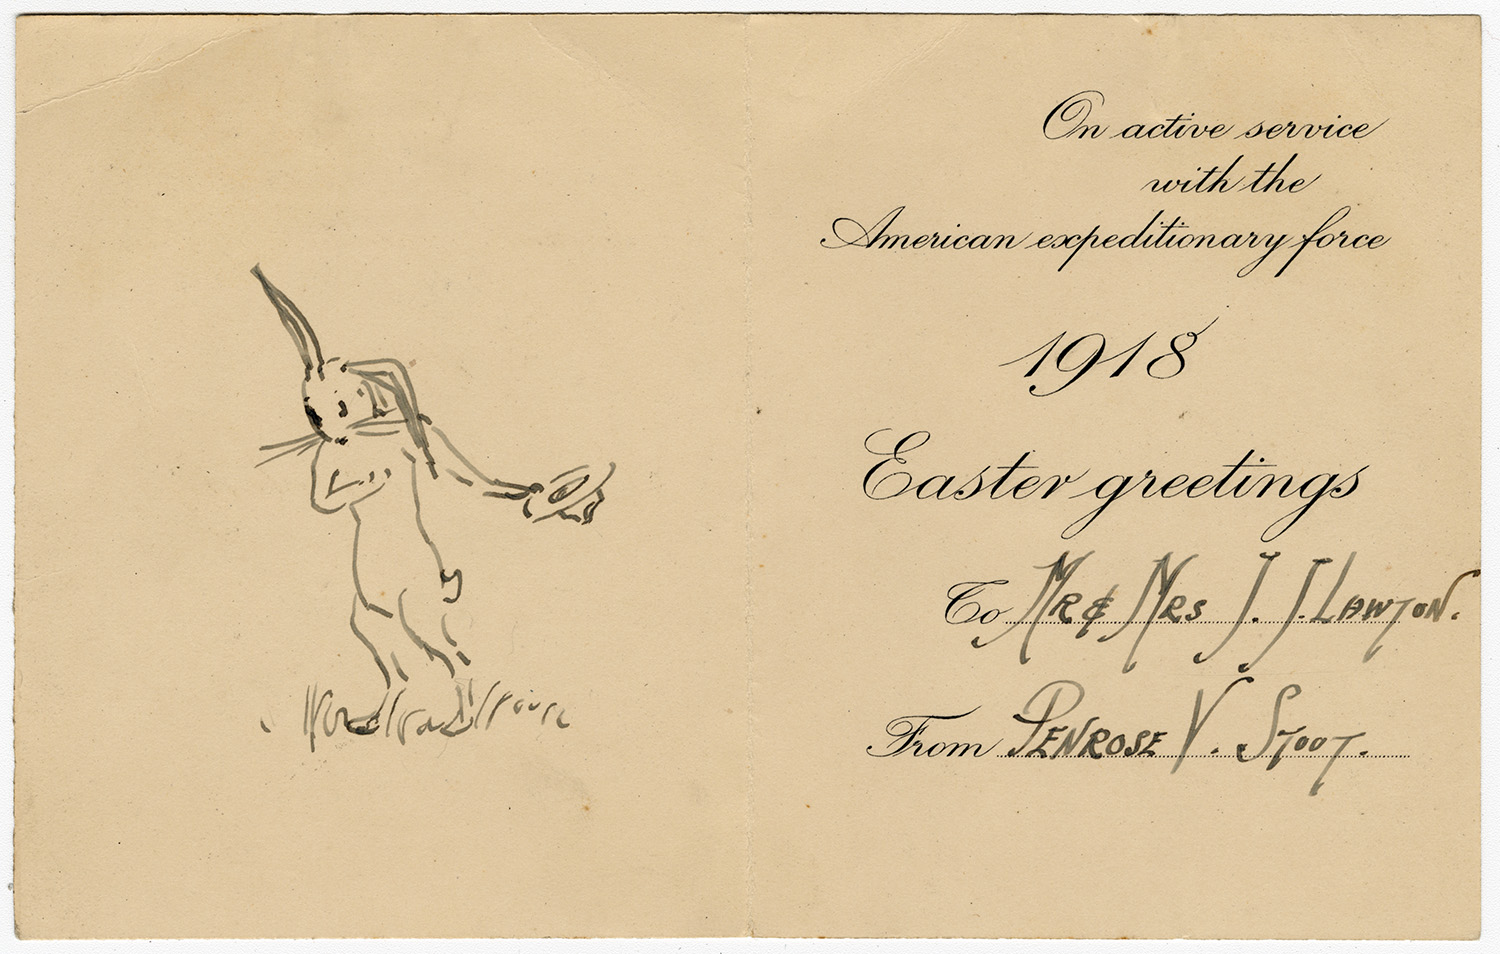 On active service
with the
American expeditionary force
1918
Easter greetings
To Mr & Mrs J. J. Lawton.
From Penrose V. Stout.